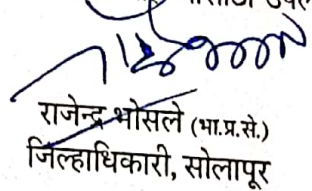 राजेन्द्र भोसले (भा.प्र.से.)
जिल्हाधिकारी, सोलापूर